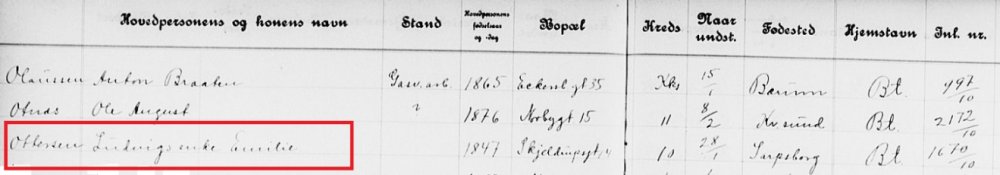 Hovedpersonens og konens navn Stand Hovedpersonens fødselsaar og -dag Bopæl Kreds Naar undst. Fødested Hjemstavn Inl. nr.
Olaussen Anton Braaten Gasv. arb. 1865 Eckersb gt 35 Xks 15/1 Bærum Bt. 497/10
Otnæs Ole August 1876 Norbygt 15 11 8/2 Kv.sund Bt. 2172/10
Ottersen Ludvigs enke Emilie 1847 10 28/1 Sarpsborg Bt. 1670/10